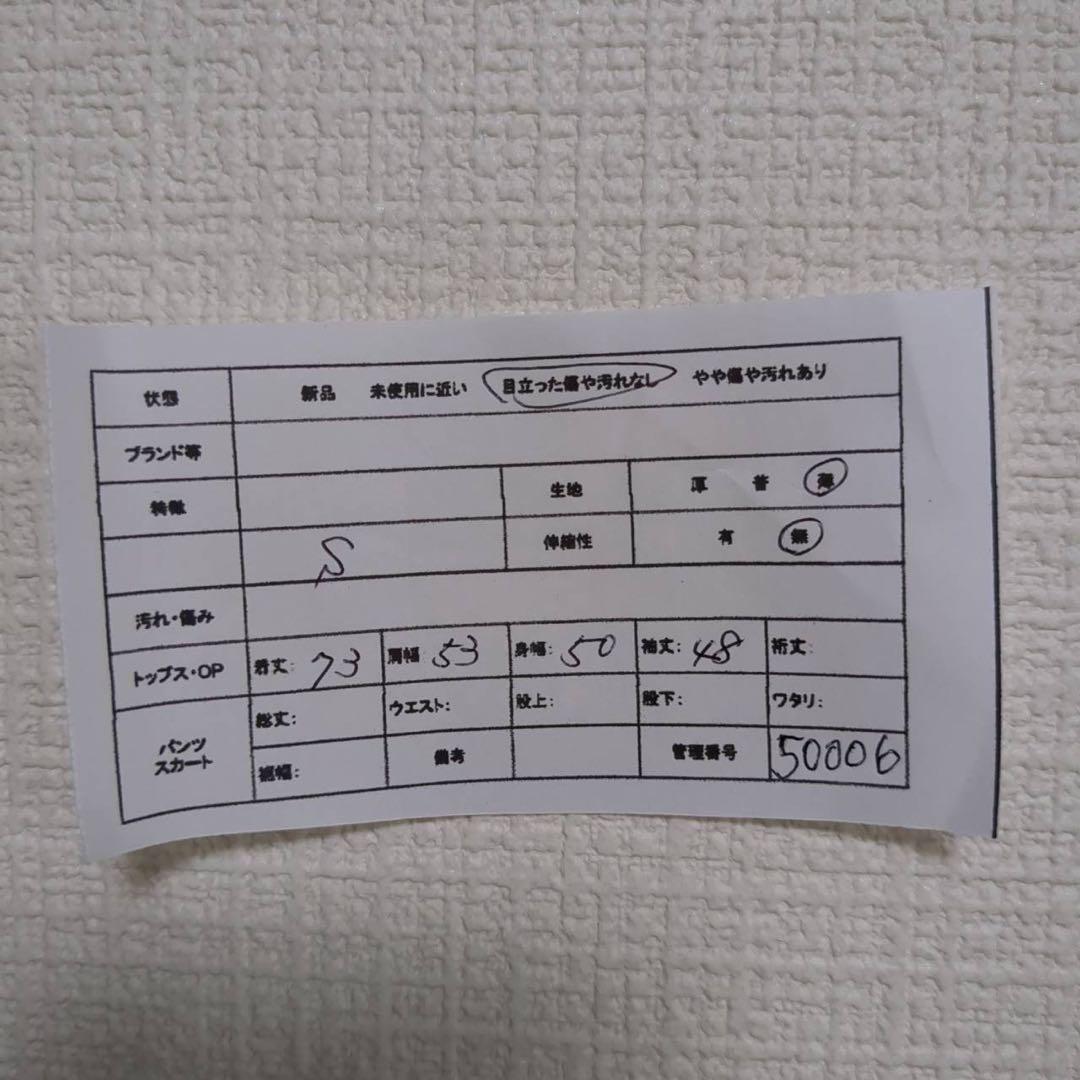 状態 新品 未使用に近い 目立った傷や汚れなし やや傷や汚れあり
ブランド等
特徴 生地 厚 普 薄
S 伸縮性 有 無
汚れ・傷み
トップス・OP 着丈: 73 肩幅: 53 身幅: 50 袖丈: 48 裄丈:
パンツ スカート 総丈: ウエスト: 股上: 股下: ワタリ:
裾幅: 備考 管理番号 50006